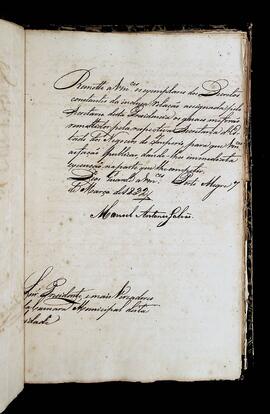 Remetto a Vm.ces os exemplares dos Decretos
constantes da incluza relação assignada pelo
Secretario desta Presidencia os quaes me forão
remettidos pela respectiva Secretaria d'Es-
tado dos Negocios do Imperio para que Vm.ces
as fação Publicar, dando-lhes immediata
execução na parte que lhe competir.
Deos Guarde a Vm.ces Porto Alegre 7
de Março de 1832
Manoel Antonio Galvão
Snr.es Presidente, e mais Vereadores
da Camara Municipal desta
Cidade